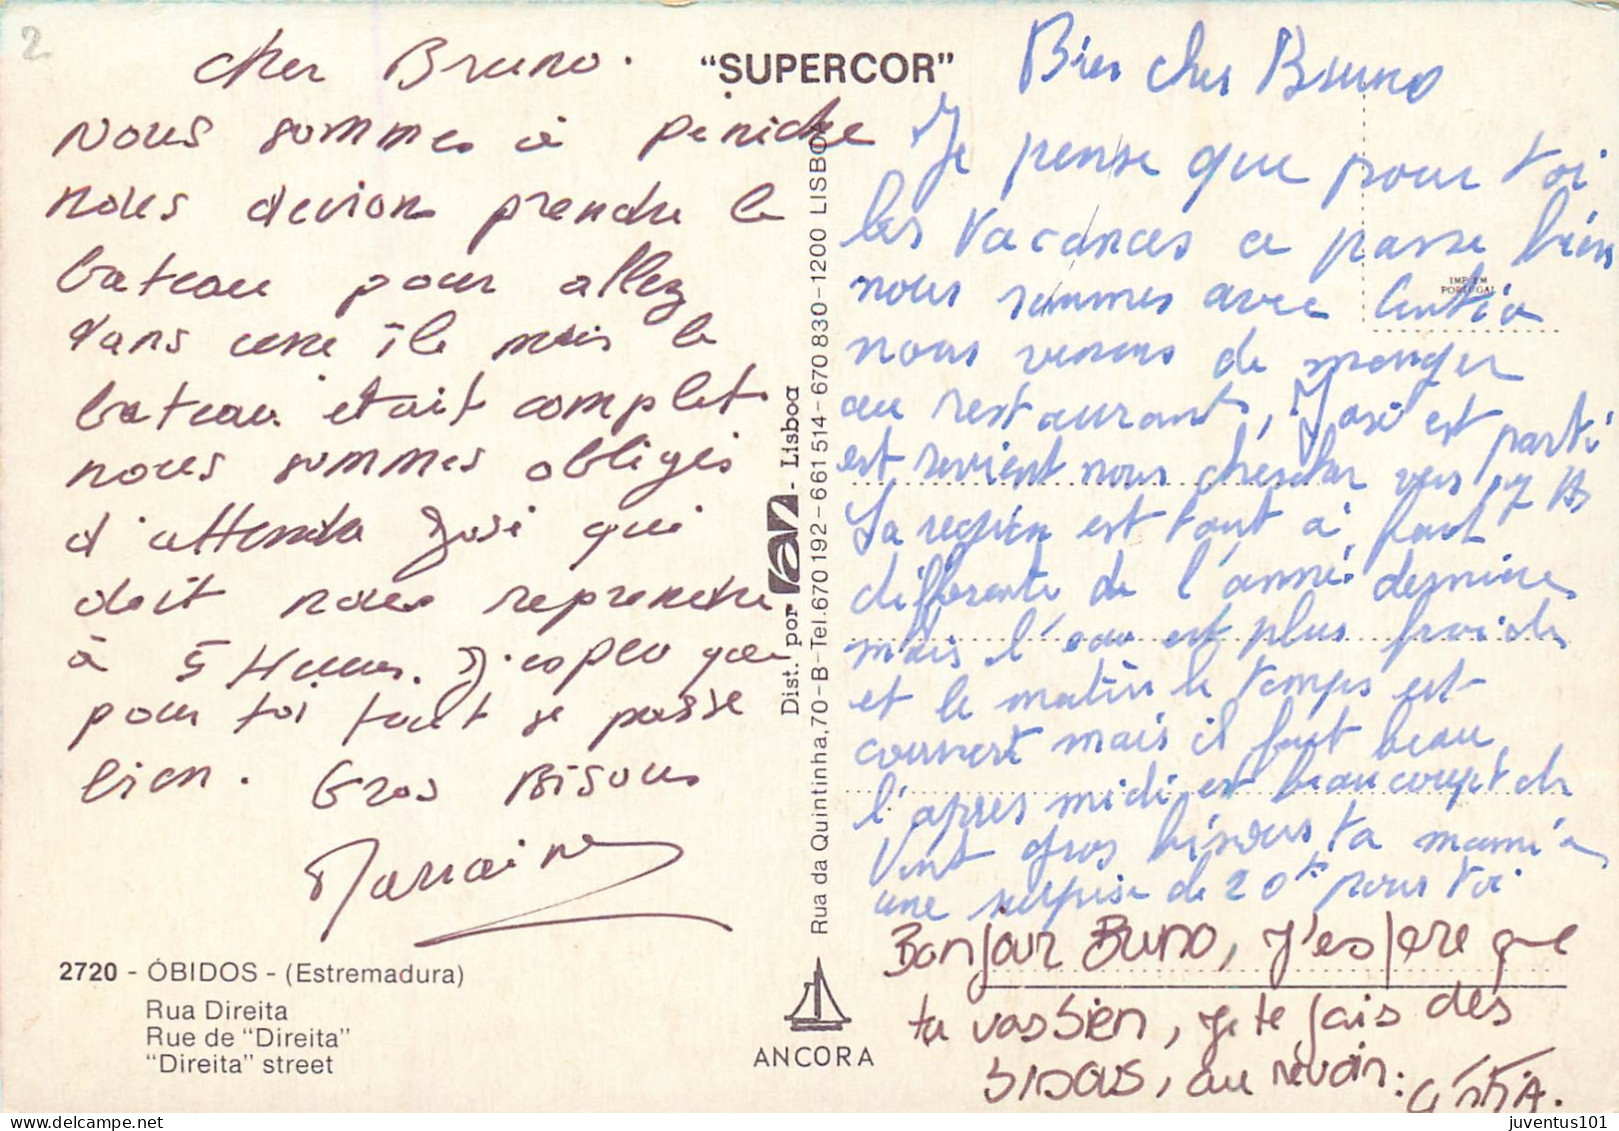 2
cher Bruno.
nous sommes à peniche
nous devions prendre le
bateau pour allez
dans une île mais le
bateau était complet
nous sommes obligés
d'attendre José qui
doit nous reprendre
à 5 Heures. J'espère que
pour toi tout se passe
bien. Gros Bisous
Marraine
2720 - ÓBIDOS - (Estremadura)
Rua Direita
Rue de "Direita"
"Direita" street
"SUPERCOR"
Dist. por ran - Lisboa
Rua da Quintinha, 70-B - Tel. 670 192-661 514-670 830-1200 LISBOA
ANCORA
IMP. EM
PORTUGAL
Bien cher Bruno
Je pense que pour toi
les vacances ce passe bien
nous sommes avec
nous venons de manger
au restaurant, José est parti
est revient nous chercher vers 17 H
La region est tout à fait
differente de l'année derniere
mais l'eau est plus froide
et le matin le temps est
couvert mais il fait beau
l'apres midi est beaucoup de
Vent gros bisous ta mamie
une surprise de 20 pour toi
Bonjour Buno, j'espere que
tu vas bien, je te fais des
bisous, au revoir.